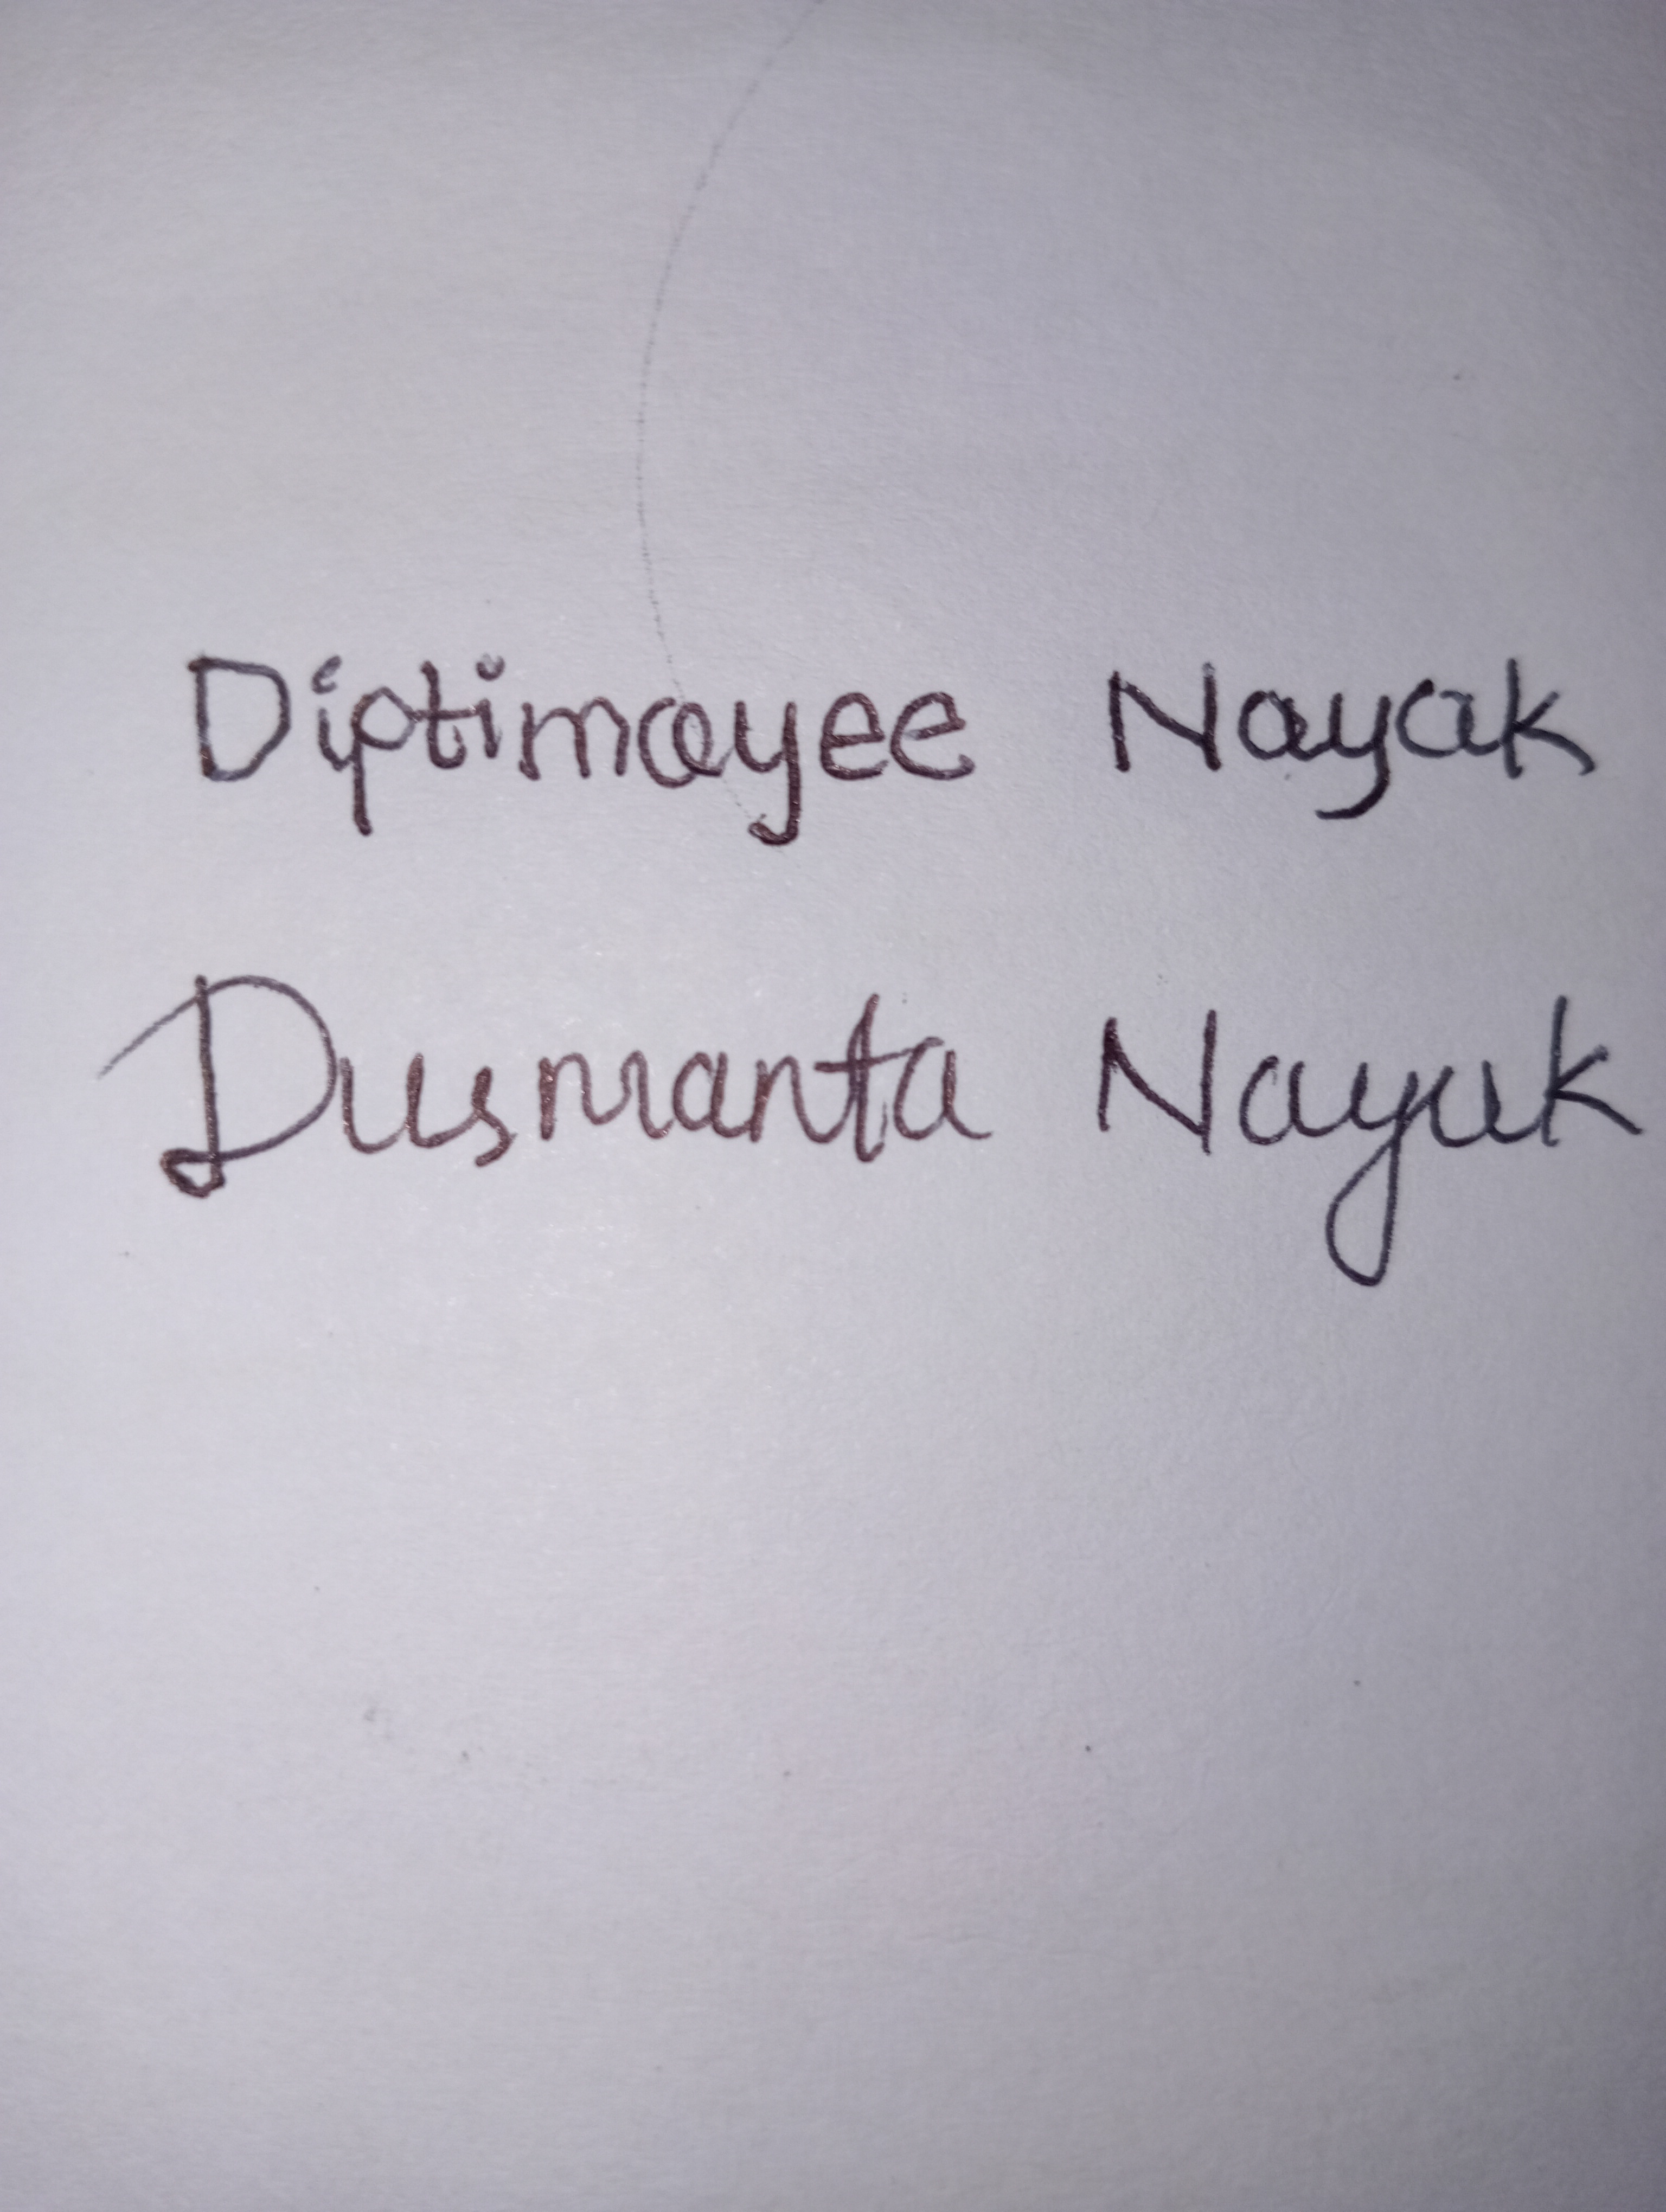 Diptimayee Nayak
Dusmanta Nayak